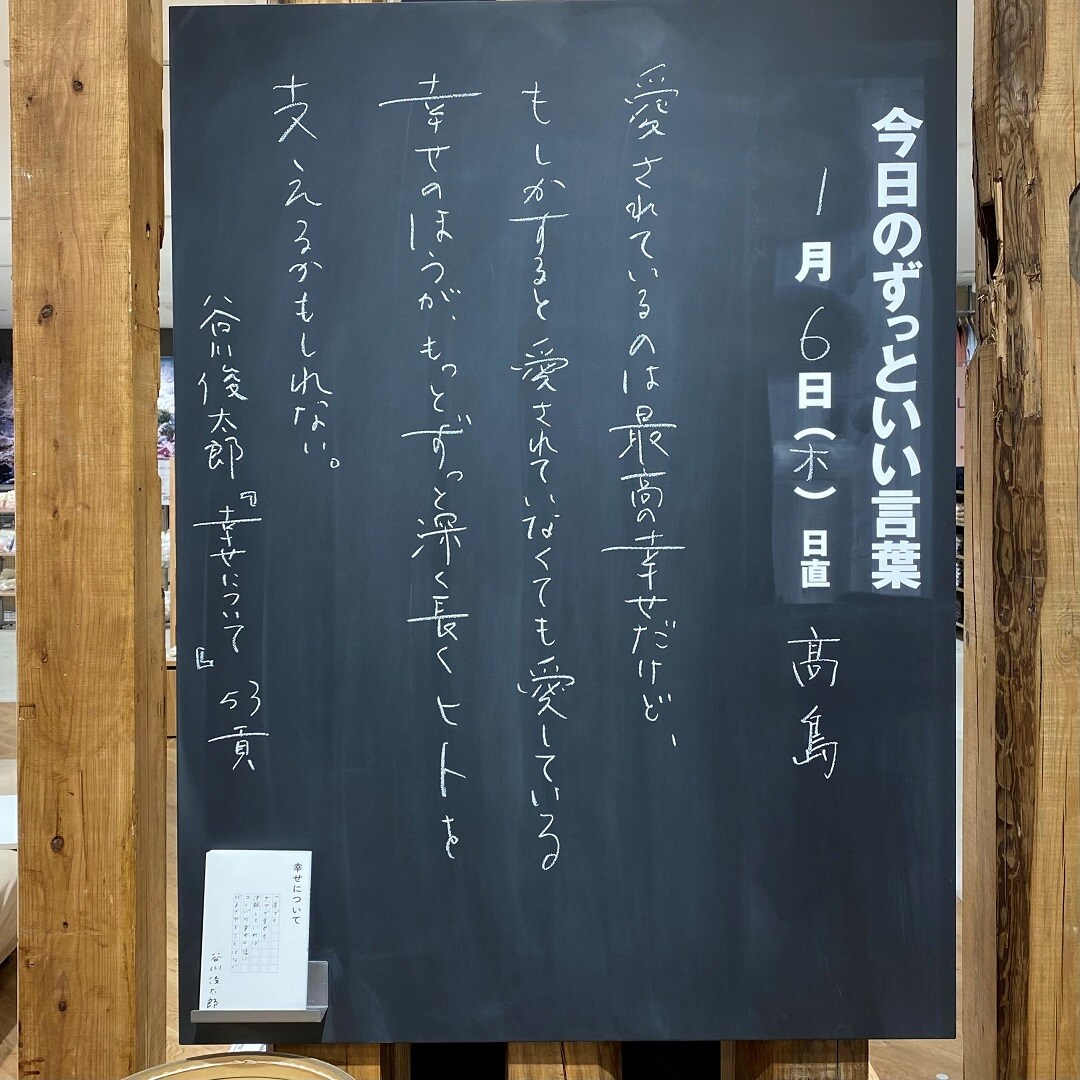 今日のずっといい言葉
1月6日(木)日直 高島
愛されているのは最高の幸せだけど、
もしかすると愛されていなくても愛している
幸せのほうが、もっとずっと深く長くヒトを
支えるかもしれない。
谷川俊太郎『幸せについて』53頁
幸せについて
谷川俊太郎